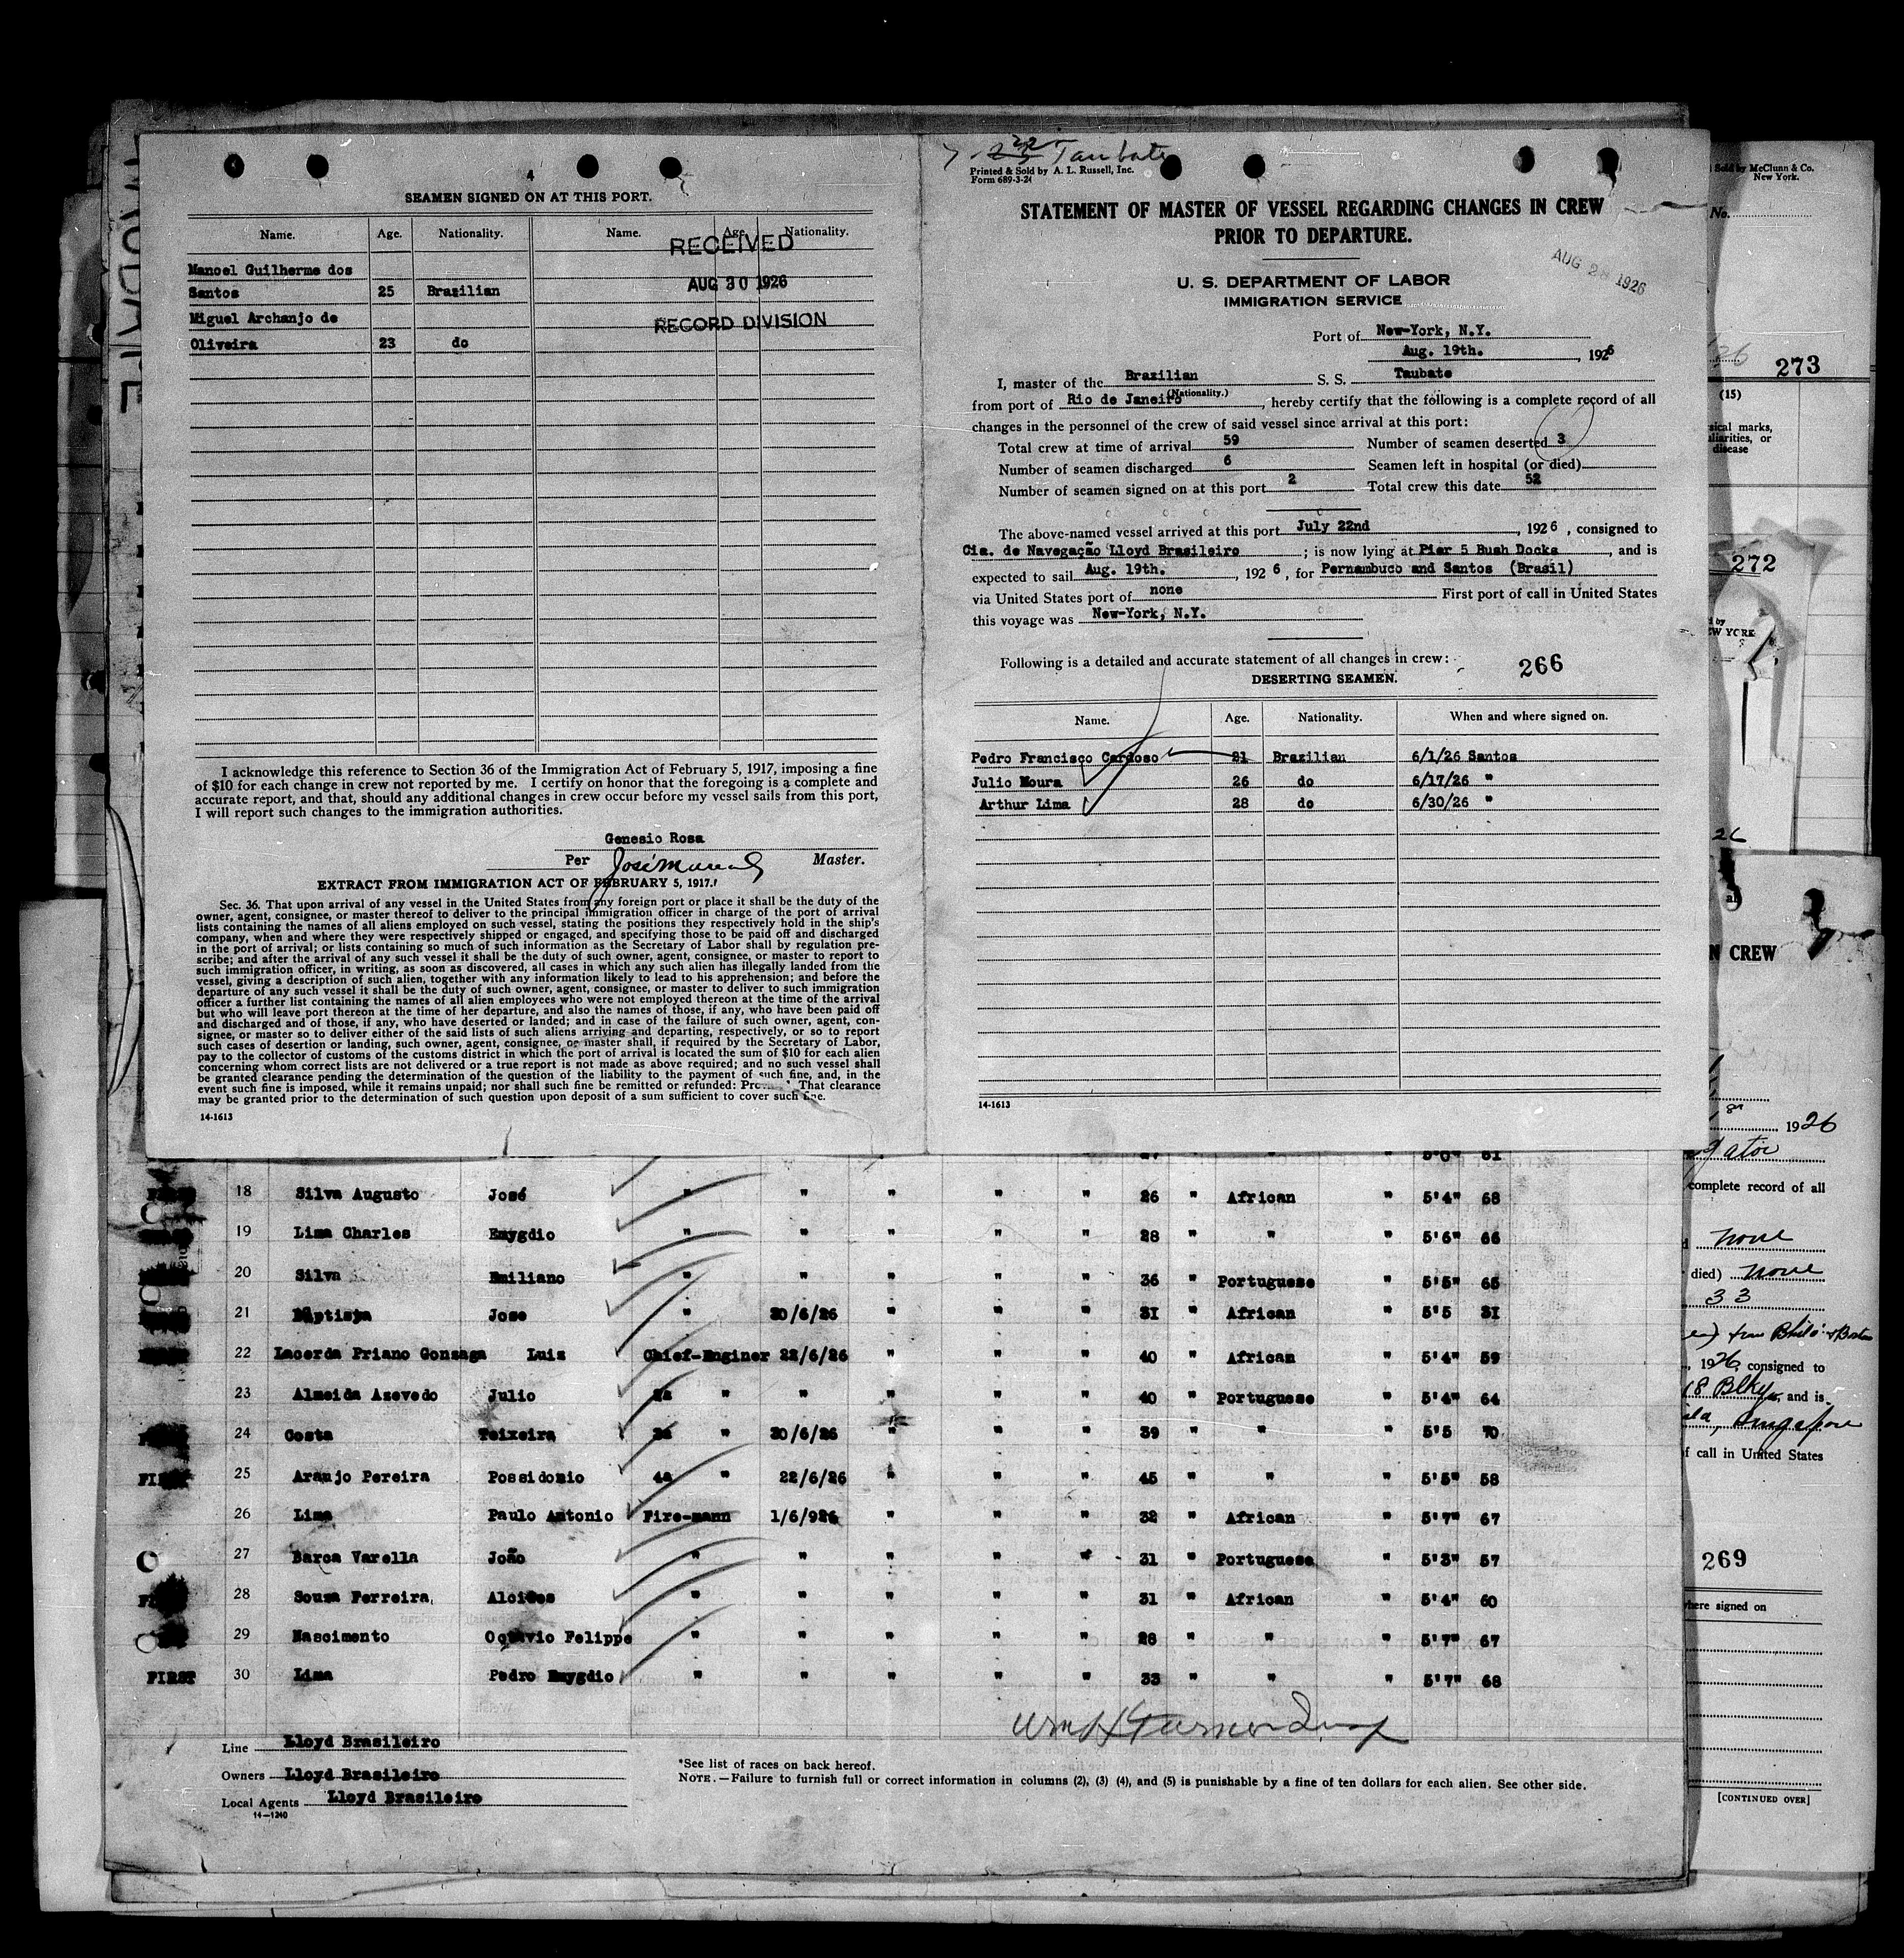 4
SEAMEN SIGNED ON AT THIS PORT.
Name. Age. Nationality. Name. Age. Nationality.
RECEIVED
AUG 30 1926
RECORD DIVISION
Manoel Guilherme dos
Santos 25 Brazilian
Miguel Archanjo de
Oliveira 23 do
I acknowledge this reference to Section 36 of the Immigration Act of February 5, 1917, imposing a fine
of $10 for each change in crew not reported by me. I certify on honor that the foregoing is a complete and
accurate report, and that, should any additional changes in crew occur before my vessel sails from this port,
I will report such changes to the immigration authorities.
Genesio Rosa
Per Master.
EXTRACT FROM IMMIGRATION ACT OF FEBRUARY 5, 1917.
Sec. 36. That upon arrival of any vessel in the United States from any foreign port or place it shall be the duty of the
owner, agent, consignee, or master thereof to deliver to the principal immigration officer in charge of the port of arrival
lists containing the names of all aliens employed on such vessel, stating the positions they respectively hold in the ship's
company, when and where they were respectively shipped or engaged, and specifying those to be paid off and discharged
in the port of arrival; or lists containing so much of such information as the Secretary of Labor shall by regulation pre-
scribe; and after the arrival of any such vessel it shall be the duty of such owner, agent, consignee, or master to report to
such immigration officer, in writing, as soon as discovered, all cases in which any such alien has illegally landed from the
vessel, giving a description of such alien, together with any information likely to lead to his apprehension; and before the
departure of any such vessel it shall be the duty of such owner, agent, consignee, or master to deliver to such immigration
officer a further list containing the names of all alien employees who were not employed thereon at the time of the arrival
but who will leave port thereon at the time of her departure, and also the names of those, if any, who have been paid off
and discharged and of those, if any, who have deserted or landed; and in case of the failure of such owner, agent, con-
signee, or master so to deliver either of the said lists of such aliens arriving and departing, respectively, or so to report
such cases of desertion or landing, such owner, agent, consignee, or master shall, if required by the Secretary of Labor,
pay to the collector of customs of the customs district in which the port of arrival is located the sum of $10 for each alien
concerning whom correct lists are not delivered or a true report is not made as above required; and no such vessel shall
be granted clearance pending the determination of the question of the liability to the payment of such fine, and, in the
event such fine is imposed, while it remains unpaid; nor shall such fine be remitted or refunded: That clearance
may be granted prior to the determination of such question upon deposit of a sum sufficient to cover such fine.
14-1613
Taubate
Printed & Sold by A. L. Russell, Inc.
Form 689-3-24
STATEMENT OF MASTER OF VESSEL REGARDING CHANGES IN CREW
PRIOR TO DEPARTURE.
U. S. DEPARTMENT OF LABOR
IMMIGRATION SERVICE
AUG 1926
Port of New-York, N.Y.
Aug. 19th. , 1926
I, master of the Brazilian S. S. Taubate
(Nationality.)
from port of Rio de Janeiro , hereby certify that the following is a complete record of all
changes in the personnel of the crew of said vessel since arrival at this port:
Total crew at time of arrival 59 Number of seamen deserted 3
Number of seamen discharged 6 Seamen left in hospital (or died)
Number of seamen signed on at this port 2 Total crew this date 52
The above-named vessel arrived at this port July 22nd , 1926 , consigned to
Cia. de Navegação Lloyd Brasileiro ; is now lying at Pier 5 Bush Docks , and is
expected to sail Aug. 19th. , 1926 , for Pernambuco and Santos (Brasil)
via United States port of none First port of call in United States
this voyage was New-York, N.Y.
Following is a detailed and accurate statement of all changes in crew:
266
DESERTING SEAMEN.
Name. Age. Nationality. When and where signed on.
Pedro Francisco Cardoso 21 Brazilian 6/1/26 Santos
Julio Moura 26 do 6/17/26 "
Arthur Lima 28 do 6/30/26 "
14-1613
18 Silva Augusto José " " " " " 26 " African " 5'4" 68
19 Lima Charles Emygdio " " " " " 28 " " " 5'6" 66
20 Silva Emiliano " " " " " 36 " Portuguese " 5'5" 65
21 Baptista Jose " 30/6/26 " " " 31 " African " 5'5 81
22 Lacerda Priano Gonzaga Luiz Chief-Enginer 22/6/26 " " " 40 " African " 5'4" 59
23 Almeida Azevedo Julio 2a " " " " " 40 " Portuguese " 5'4" 64
24 Costa Teixeira 3a " 30/6/26 " " " 39 " " " 5'5 70
FIRST 25 Araujo Pereira Possidonio 4a " 22/6/26 " " " 45 " " " 5'5" 58
26 Lima Paulo Antonio Fire-mann 1/6/926 " " " 32 " African " 5'7" 67
27 Barca Varella João " " " " " 31 " Portuguese " 5'3" 57
28 Souza Ferreira Alcides " " " " " 31 " African " 5'4" 60
29 Nascimento Octavio Felippe " " " " " 28 " " " 5'7" 67
FIRST 30 Lima Pedro Emygdio " " " " " 33 " " " 5'7" 68
Line Lloyd Brasileiro
Owners Lloyd Brasileiro
Local Agents Lloyd Brasileiro
14-1240
*See list of races on back hereof.
NOTE.—Failure to furnish full or correct information in columns (2), (3) (4), and (5) is punishable by a fine of ten dollars for each alien. See other side.
Sold by McClunn & Co.
New York.
No.
273
(15)
sical marks,
liarities, or
disease
272
EW YORK
26
N CREW
1926
complete record of all
none
died) none
33
, 1926, consigned to
and is
Singapore
f call in United States
269
here signed on
[CONTINUED OVER]